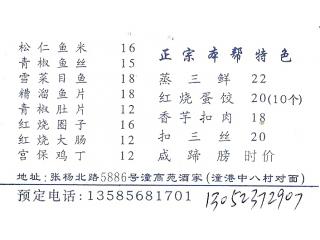 松仁鱼米 16
青椒鱼丝 15
雪菜目鱼 18
糟溜鱼片 18
青椒肚片 12
红烧圈子 16
红烧大肠 12
宫保鸡丁 12
正宗本帮特色
蒸三鲜 22
红烧蛋饺 20(10个)
香芋扣肉 18
扣三丝 20
咸蹄膀 时价
地址:张杨北路5886号潼高苑酒家(潼港中八村对面)
预定电话:13585681701 13052372907